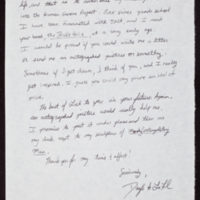 life and that is
into the Human Genome Project. Ever since grade school
I have been fascinated with DNA, and I read
your book, The Double Helix, at a very early age.
I would be proud if you could write me a letter
or send me an autographed picture or something.
Sometimes if I get down, I think of you, and I really
get inspired. I guess you could say you're an idol of
mine.
The best of luck to you in your future. Again,
an autographed picture would really help me.
I promise to put it under glass and then on
my desk next to my sculpture of
Man.
Thank you for your time & effort!
Sincerely,